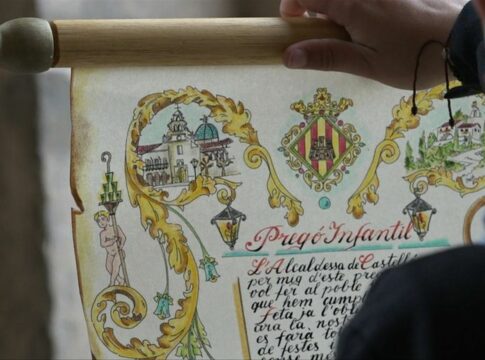 Pregó Infantil
L'Alcaldessa de Castell
per mig d'este pre
vol fer al poble
que hem cump
festa ja l'obl
ara la nost
es farà to
de festes d